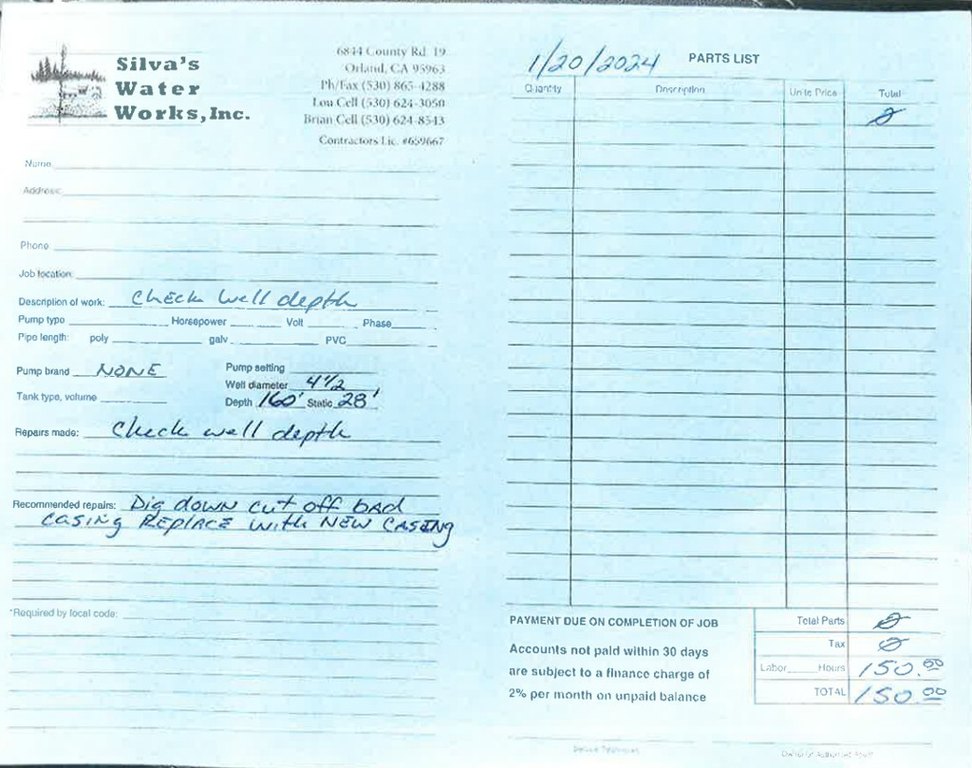 Silva's
Water
Works, Inc.
6844 County Rd. 19
Orland, CA 95963
Ph/Fax (530) 865-4288
Lou Cell (530) 624-3050
Brian Cell (530) 624-8543
Contractors Lic. #659667
Name
Address:
Phone
Job location:
Description of work: Check well depth
Pump type Horsepower Volt Phase
Pipe length: poly galv PVC
Pump brand NONE
Pump setting
Well diameter 4 1/2
Tank type, volume
Depth 160' Static 28'
Repairs made: Check well depth
Recommended repairs: Dig down cut off bad
casing Replace with New Casing
*Required by local code:
1/20/2024 PARTS LIST
Quantity Description Unite Price Total
0
PAYMENT DUE ON COMPLETION OF JOB
Accounts not paid within 30 days
are subject to a finance charge of
2% per month on unpaid balance
Total Parts 0
Tax 0
Labor Hours 150.00
TOTAL 150.00